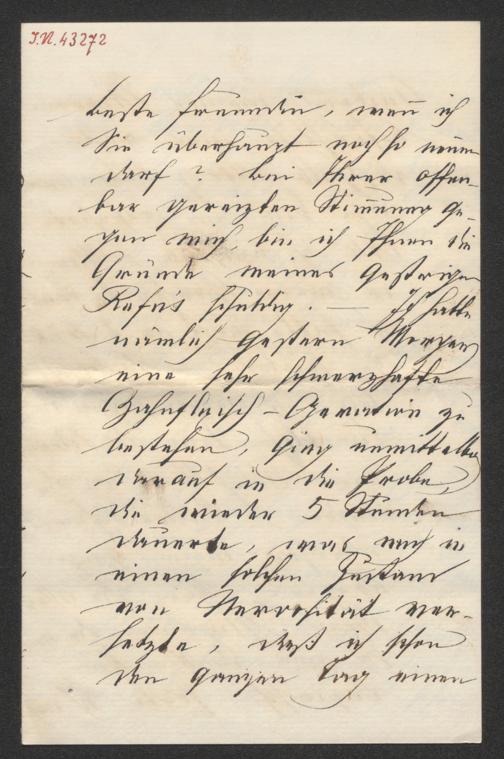 J.N. 43272
beste Freundin, wenn ich
Sie überhaupt noch so nennen
darf? Bei Ihrer offen-
bar gereizten Stimmung ge-
gen mich, bin ich Ihnen die
Gründe meines gestrigen
Refus schuldig. — Ich hatte
nämlich gestern Morgen
eine sehr schmerzhafte
Zahnfleisch-Operation zu
bestehen, ging unmittelbar
darauf in die Probe,
die wieder 5 Stunden
dauerte, was mich in
einen solchen Zustand
von Nervosität ver-
setzte, daß ich schon
den ganzen Tag einen